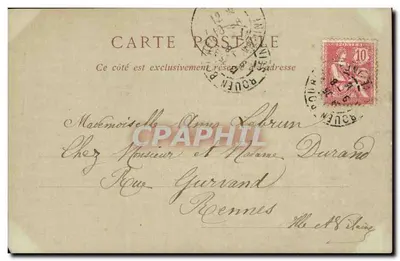 CARTE POSTALE
Ce côté est exclusivement réservé à l'adresse
10
ROUEN
ROUEN
Mademoiselle Lebrun
CPAPHIL
Chez Monsieur et Madame Durand
Rue Gurvand
Rennes
Ille et Vilaine